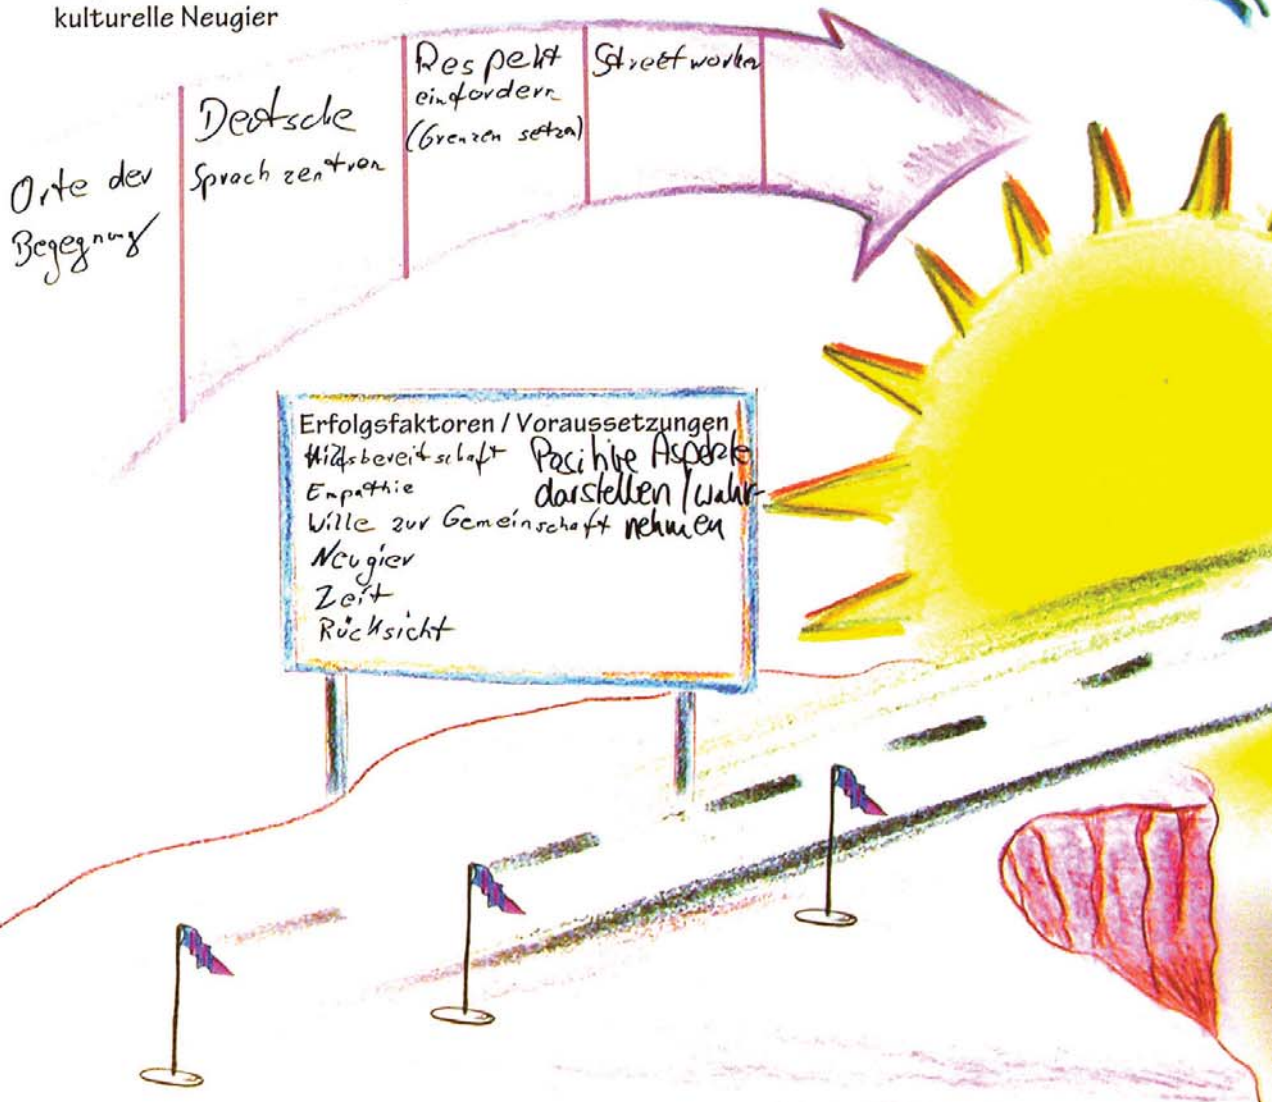 kulturelle Neugier
Orte der
Begegnung
Deutsche
Sprachzentren
Respekt
einfordern
(Grenzen setzen)
Streetworker
Erfolgsfaktoren / Voraussetzungen
Hilfsbereitschaft
Empathie
Wille zur Gemeinschaft
Neugier
Zeit
Rücksicht
Positive Aspekte
darstellen / wahr-
nehmen